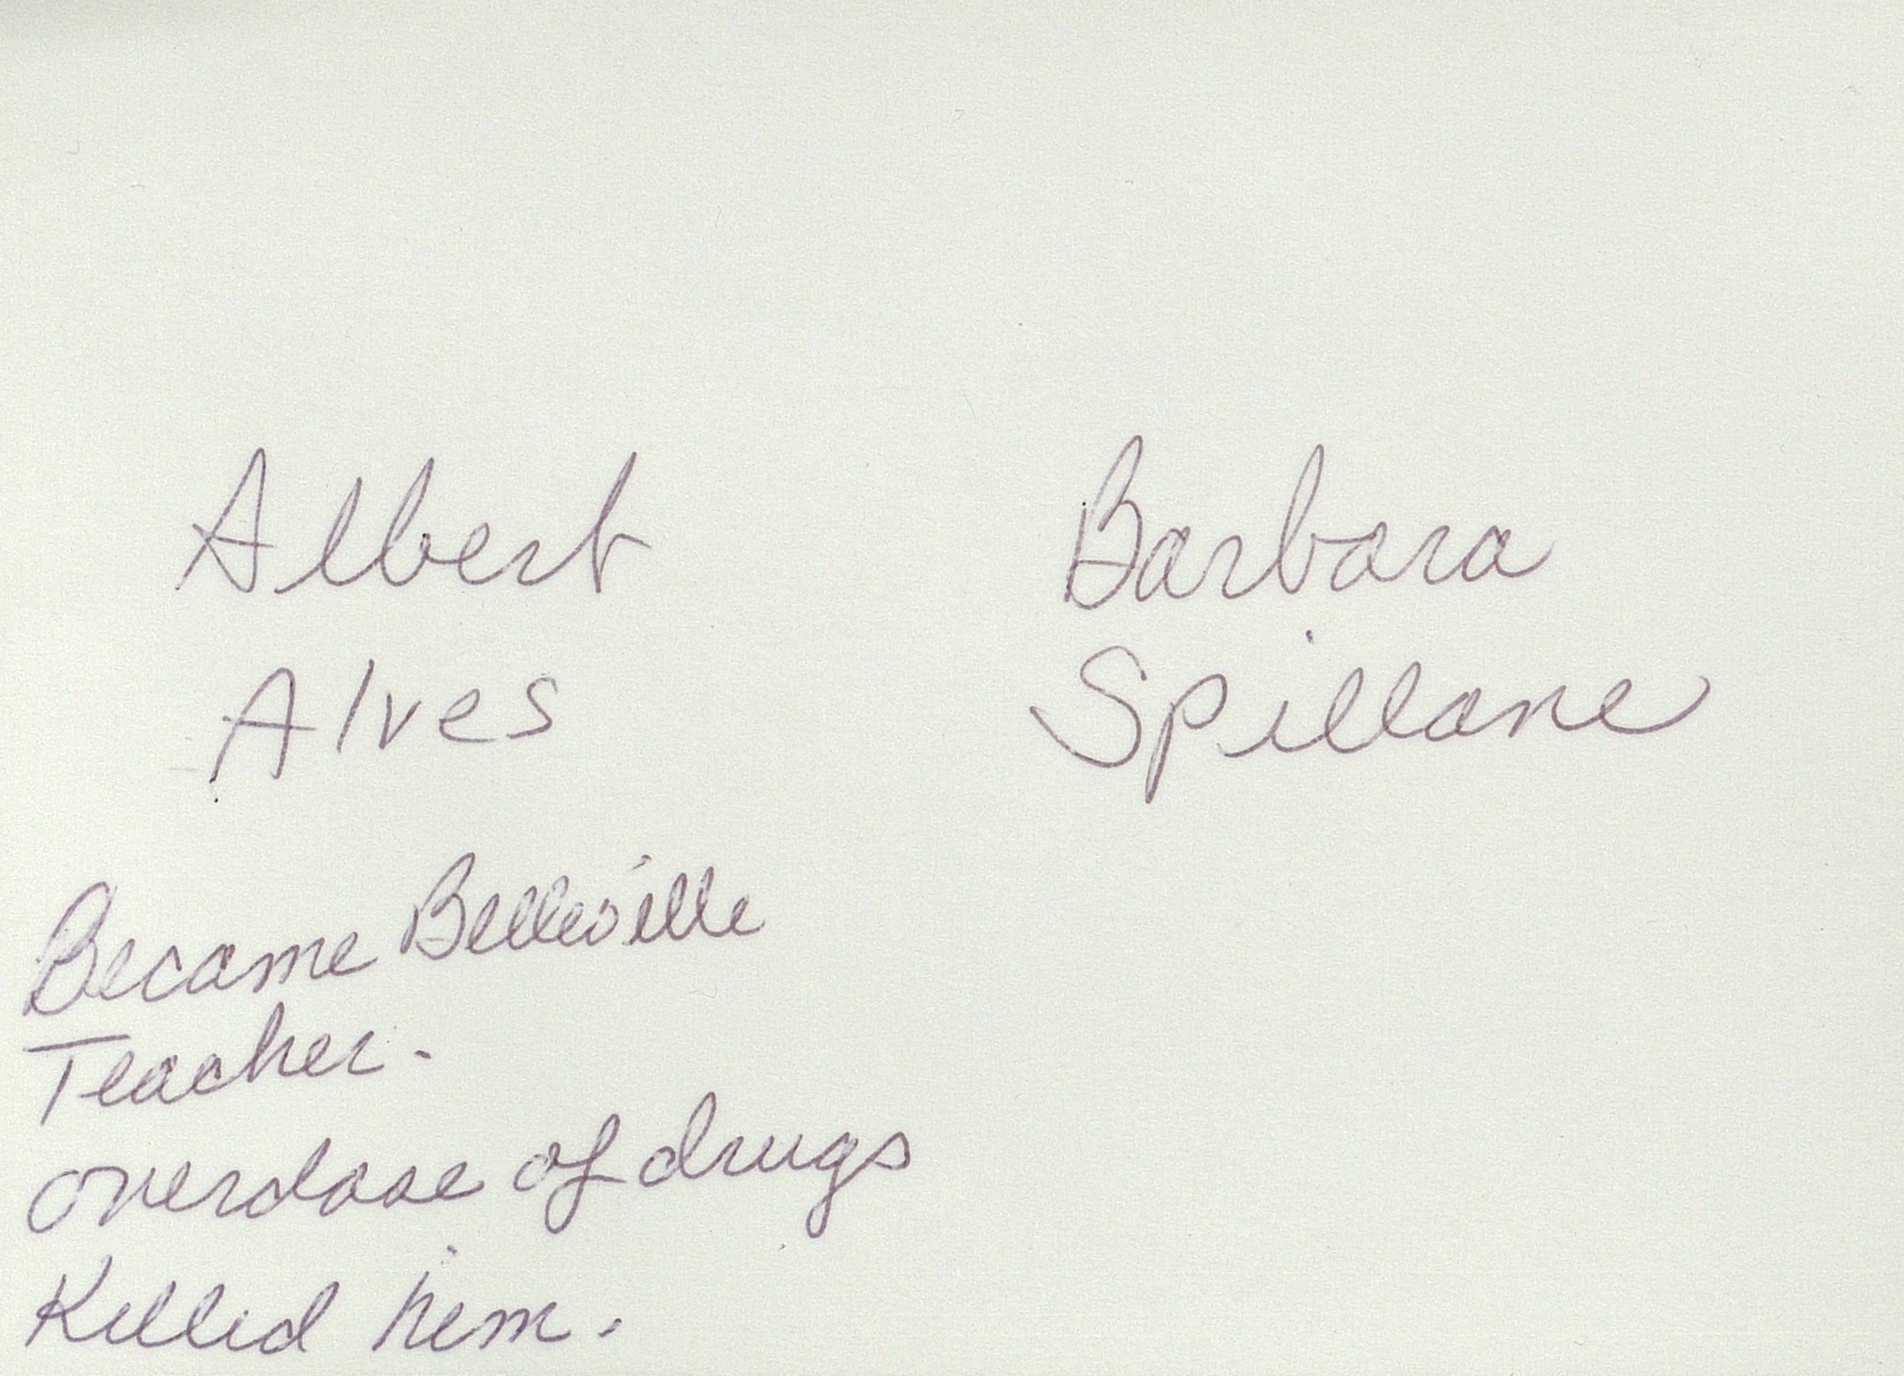 Albert
Alves
Barbara
Spillane
Became Belleville
Teacher.
overdose of drugs
Killed him.